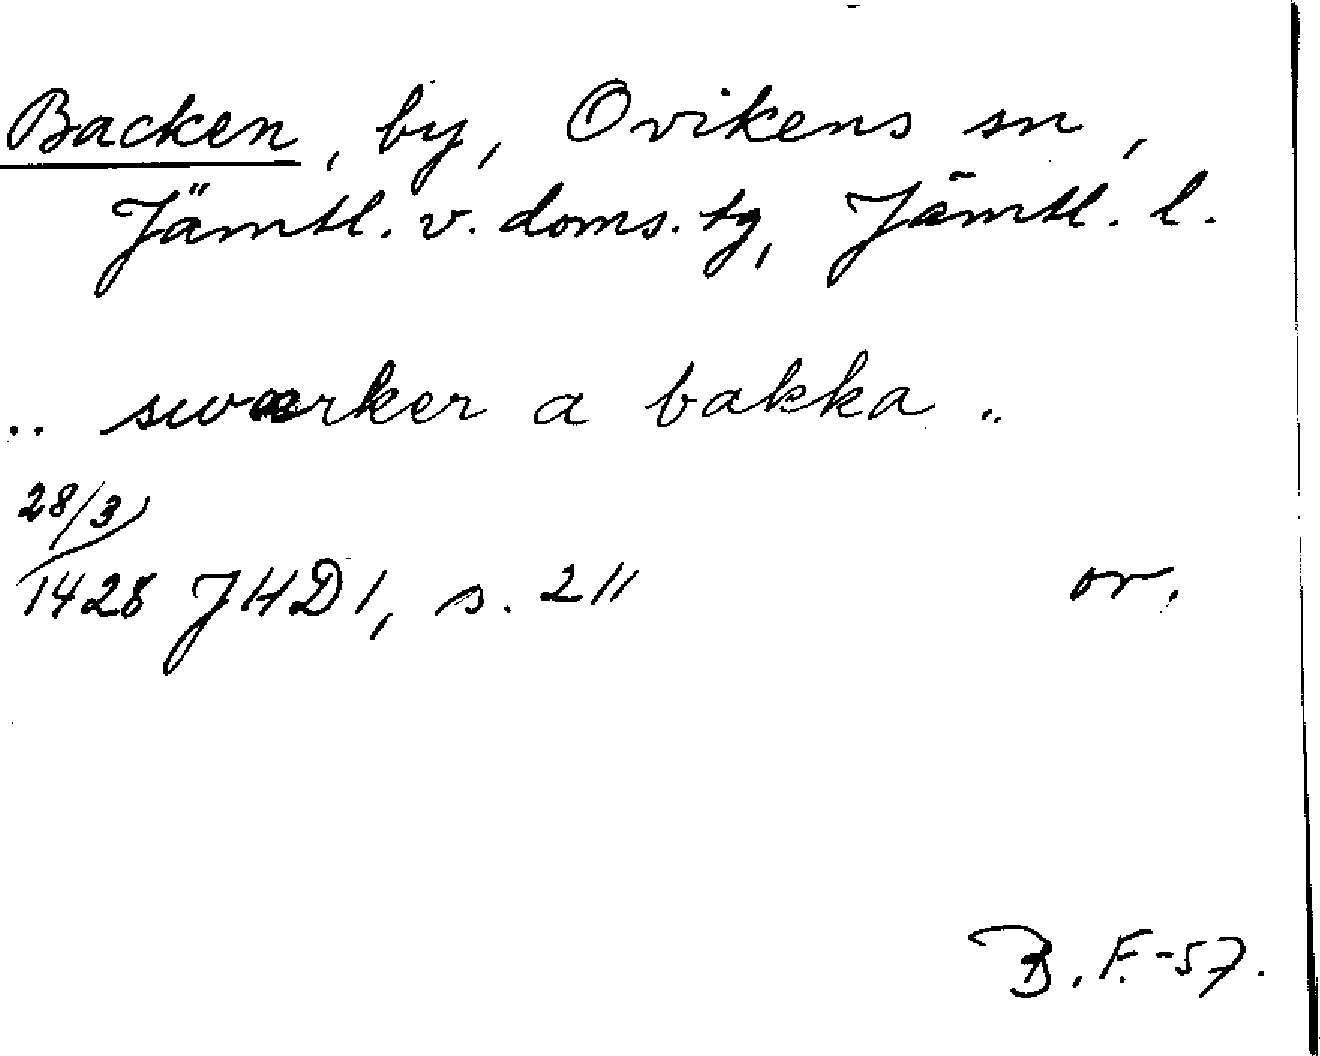 Backen, by, Ovikens sn,
Jämtl. v. doms. tg, Jämtl. l.
.. swærker a bakka ..
28/3
1428 JHD 1, s. 211 or.
B. F. -57.